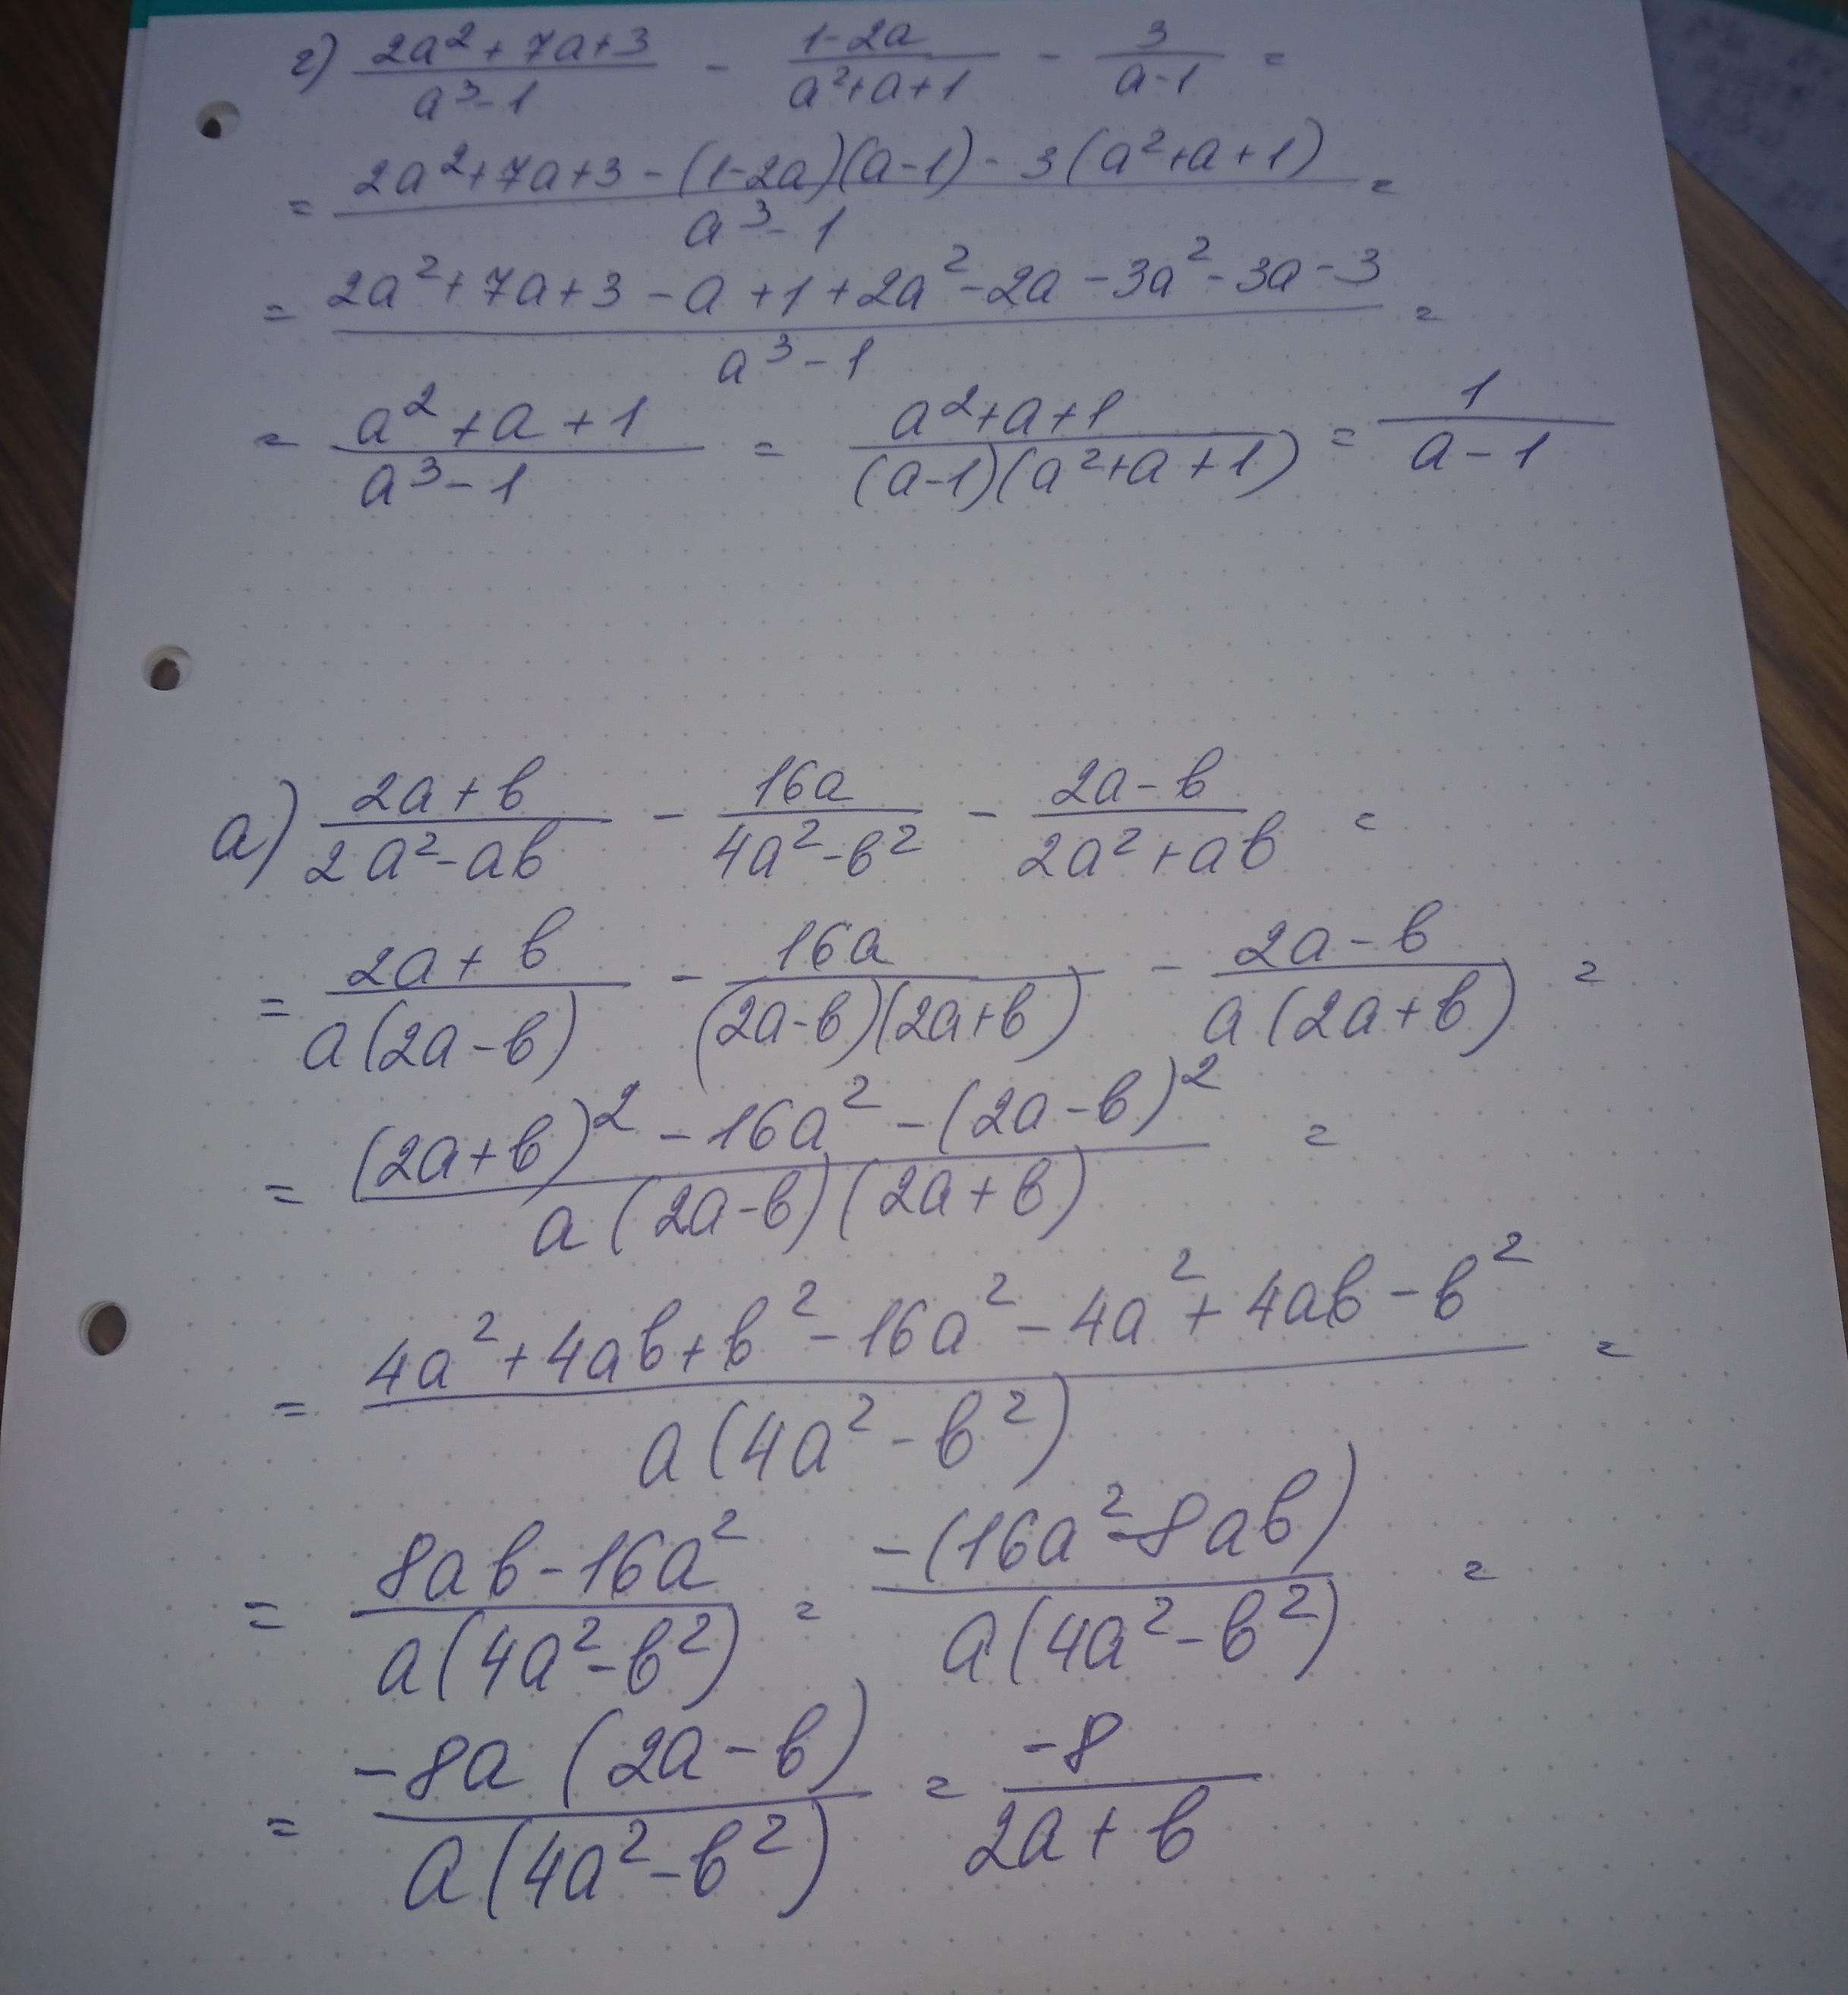 г) (2a² + 7a + 3)/(a³ - 1) - (1 - 2a)/(a² + a + 1) - 3/(a - 1) =
= (2a² + 7a + 3 - (1 - 2a)(a - 1) - 3(a² + a + 1))/(a³ - 1) =
= (2a² + 7a + 3 - a + 1 + 2a² - 2a - 3a² - 3a - 3)/(a³ - 1) =
= (a² + a + 1)/(a³ - 1) = (a² + a + 1)/((a - 1)(a² + a + 1)) = 1/(a - 1)
а) (2a + b)/(2a² - ab) - 16a/(4a² - b²) - (2a - b)/(2a² + ab) =
= (2a + b)/(a(2a - b)) - 16a/((2a - b)(2a + b)) - (2a - b)/(a(2a + b)) =
= ((2a + b)² - 16a² - (2a - b)²)/(a(2a - b)(2a + b)) =
= (4a² + 4ab + b² - 16a² - 4a² + 4ab - b²)/(a(4a² - b²)) =
= (8ab - 16a²)/(a(4a² - b²)) = -(16a² - 8ab)/(a(4a² - b²)) =
= -8a(2a - b)/(a(4a² - b²)) = -8/(2a + b)